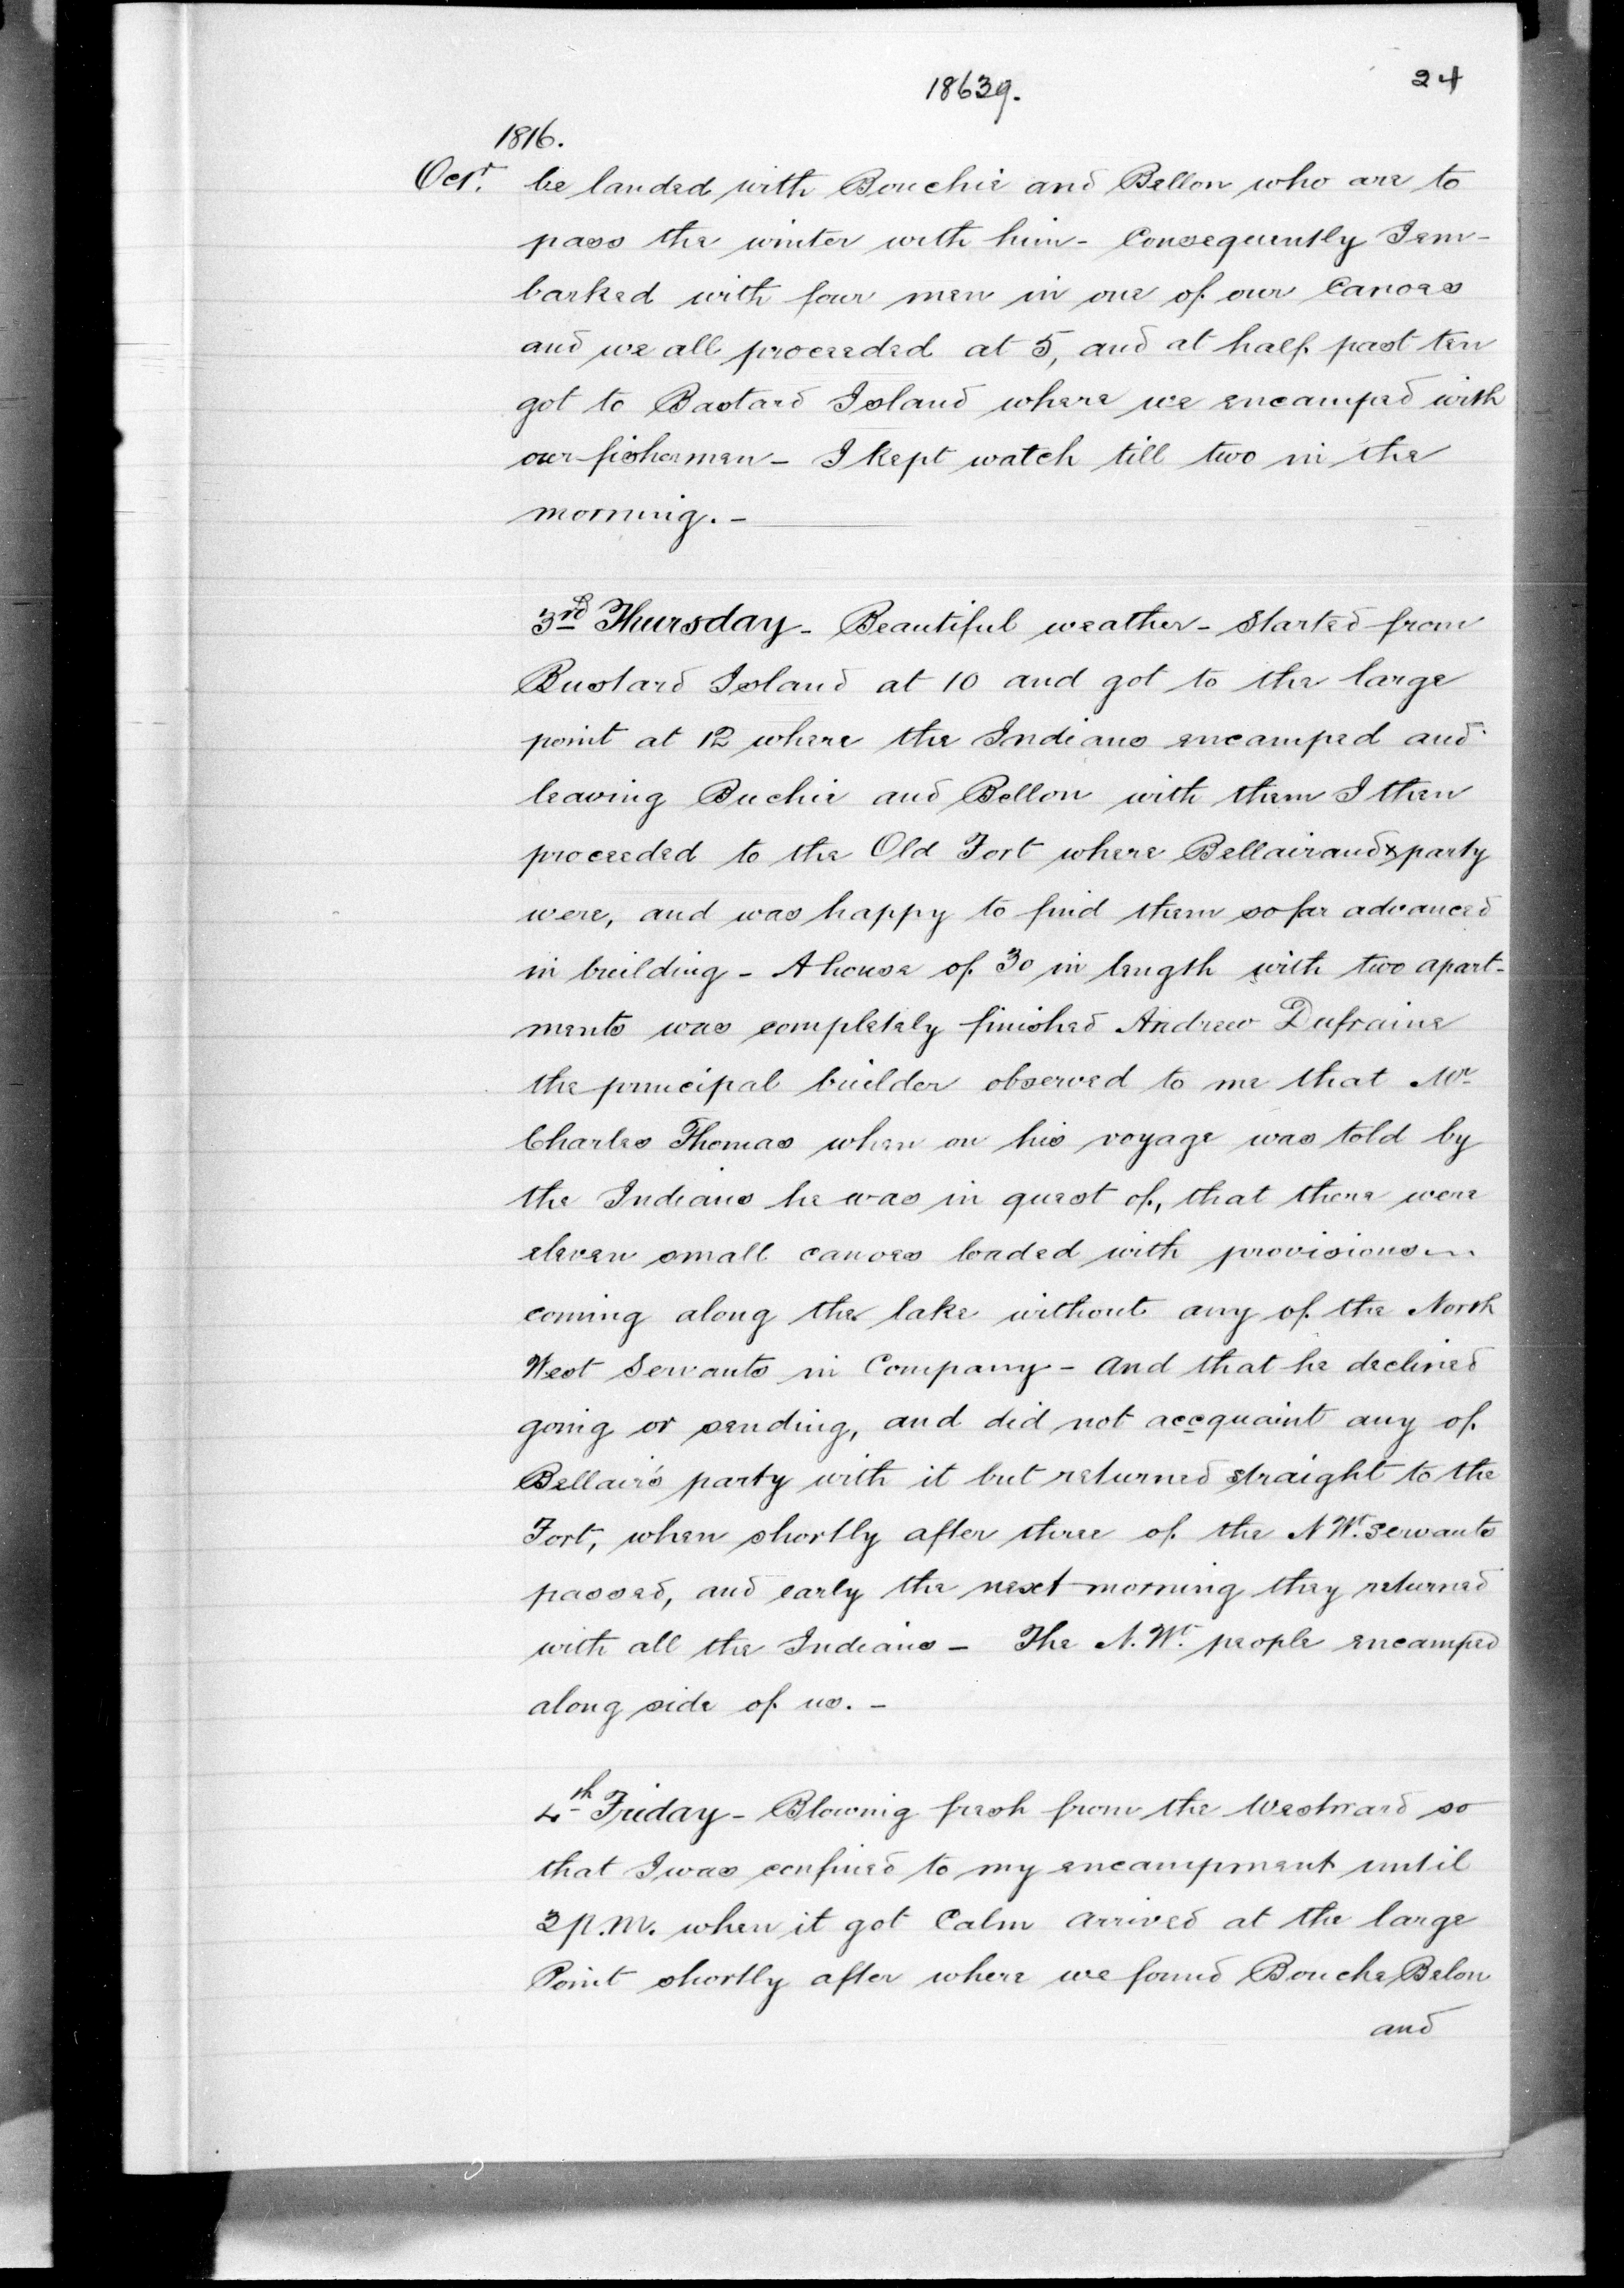 18639.
24
1816.
Octr. be landed with Bouchie and Bellon who are to
pass the winter with him - Consequently I em-
barked with four men in one of our Canoes
and we all proceeded at 5, and at half past ten
got to Bastard Island where we encamped with
our fishermen - I kept watch till two in the
morning. -
3rd Thursday - Beautiful weather - Started from
Bustard Island at 10 and got to the large
point at 12 where the Indians encamped and
leaving Buchie and Bellon with them I then
proceeded to the Old Fort where Bellair and & party
were, and was happy to find them so far advanced
in building - A house of 30 in length with two apart-
ments was completely finished Andrew Dufraine
the principal builder observed to me that Mr
Charles Thomas when on his voyage was told by
the Indians he was in quest of, that there were
eleven small canoes loaded with provisions
coming along the lake without any of the North
West Servants in Company - and that he declined
going or sending, and did not accquaint any of
Bellair's party with it but returned straight to the
Fort, when shortly after three of the N Wt. Servants
passed, and early the next morning they returned
with all the Indians - The N. Wt. people encamped
along side of us. -
4th Friday - Blowing fresh from the Westward so
that I was confined to my encampment until
2 p.m. when it got Calm arrived at the large
Point shortly after where we found Bouche Belon
and